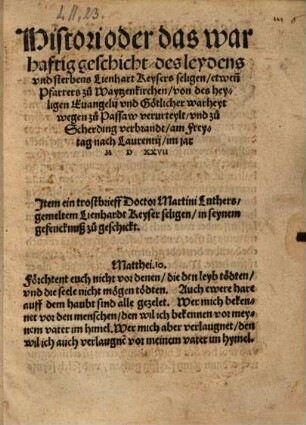 4 11, 23.
Histori oder das war
hafftig geschicht des leydens
vnd sterbens Lienhart Keysers seligen/etweñ
Pfarrers zů Waytzenkirchen/von des hey-
ligen Euangelij vnd Götlicher warheyt
wegen zů Passaw verurteylt/vnd zů
Scherding verbrandt/am Frey-
tag nach Laurentij/im jar
M D XXVII
Item ein trostbrieff Doctor Martini Luthers/
gemeltem Lienhardt Keyser seligen/in seynem
gefencknuß zů geschickt.
Matthei.10.
Förchtent euch nicht vor denen/die den leyb tödten/
vnd die seel nicht mögen tödten. Auch ewere hare
auff dem haubt sind alle gezelet. Wer mich beken-
net vor den menschen/den wil ich bekennen vor mey-
nem vater im hymel. Wer mich aber verlaugnet/den
wil ich auch verlaugnẽ vor meinem vater im hymel.